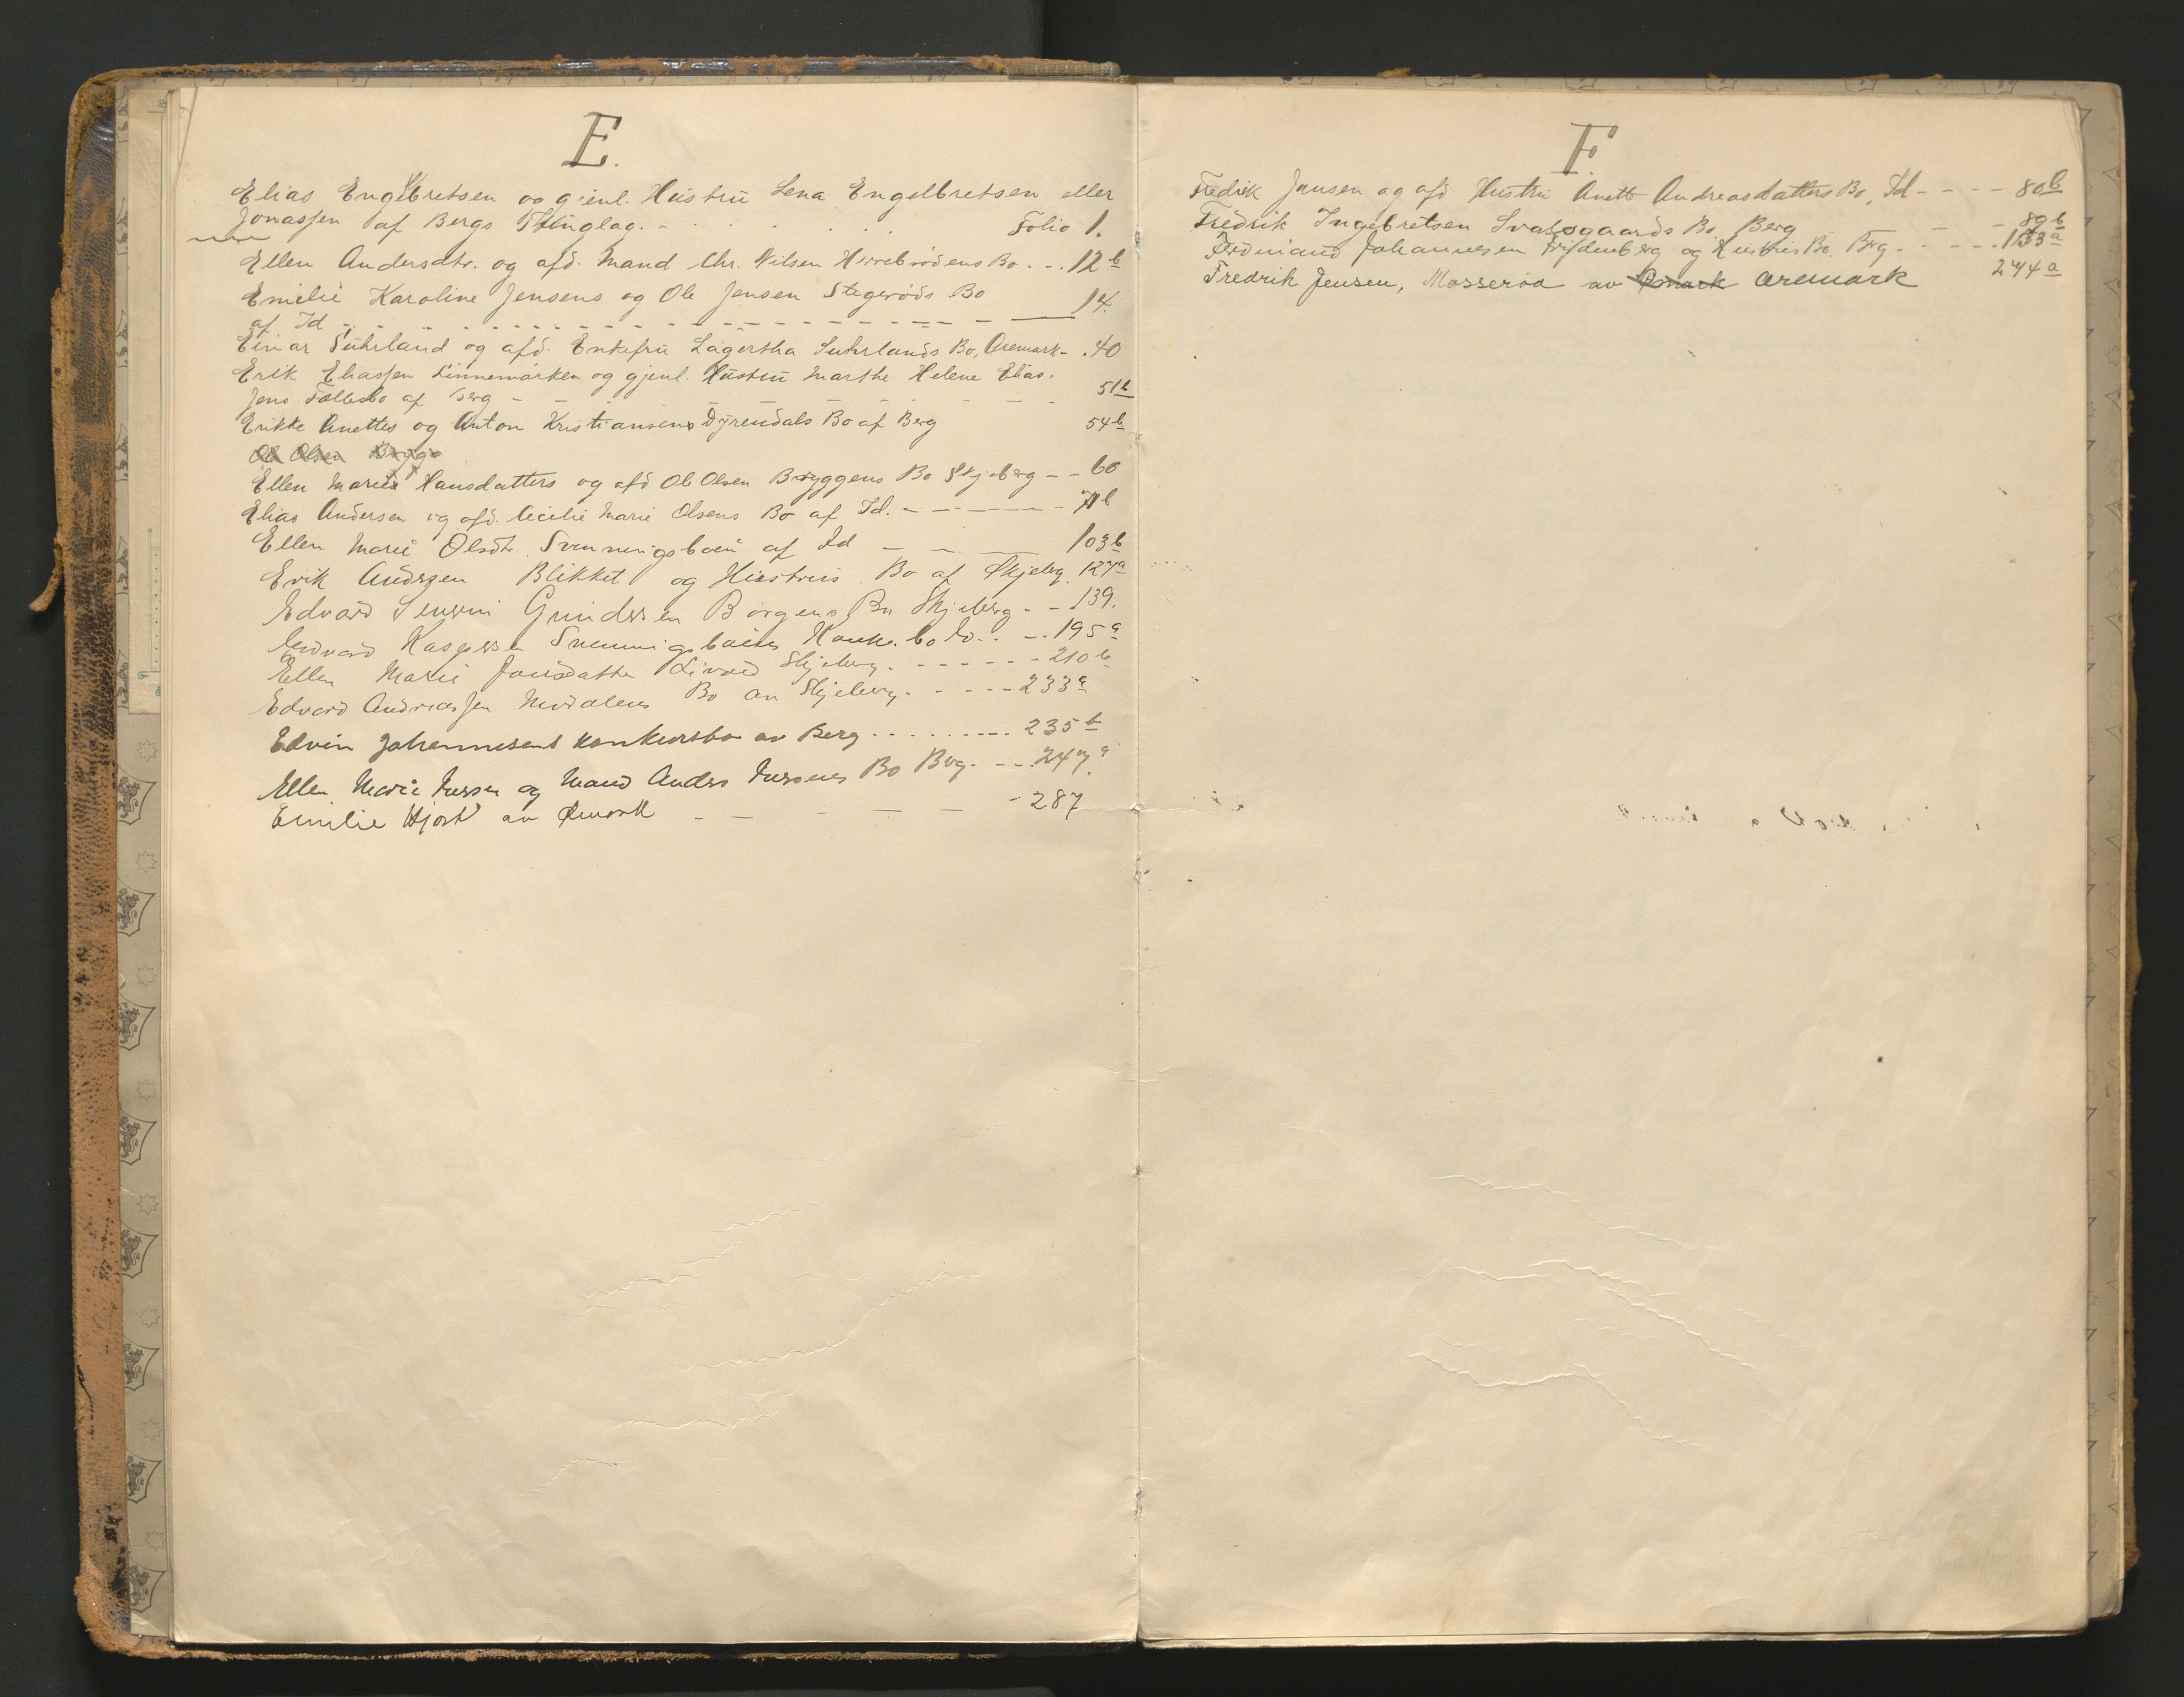 E.
Elias Engelbretsen og gjenl. Hustru Lena Engelbretsen eller
Jonassen af Bergs Thinglag. - Folio 1.
Ellen Andersdtr. og afd. Mand Chr. Nilsen Herrebrødens Bo - - 12 b
Emilie Karoline Jensens og Ole Jensen Stegerøds Bo
af Id - - - 14.
Einar Suhrland og afd. Enkefru Lagertha Suhrlands Bo, Aremark - . 40
Erik Eliassen Linnemarken og gjenl. Hustru Marthe Helene Elias-
sens Fællesbo af Berg - - - 51 b
Erikke Anettes og Anton Kristiansens Dyrendals Bo af Berg 54 b
Ole Olsen Brygge
Ellen Maries Hansdatters og afd Ole Olsen Bryggens Bo Skjeberg - - 60
Elias Andersen og afd. Cecilie Marie Olsens Bo af Id. - - - 71 b
Ellen Marie Olsdtr. Svenningsbøen af Id - - - 103 b
Erik Andersen Blikket og Hustrus Bo af Skjeberg. 127 a
Edvard Gundersen Borgens Bo Skjeberg - - 139.
Edvard Kaspersen Svenningsbøens Konk. bo Id. - - 195 a
Ellen Marie Skjeberg - - - 210 b
Edvard Andreassen Bo av Skjeberg - - - 233 a
Edvin Johannesens konkursbo av Berg - - - 235 b
Ellen Marie Iversen og Mand Anders Iversens Bo Berg. - - - 247 a
Emilie Hjort av Ømark - - - 287
F.
Fredrik Jensen og afd Hustru Anette Andreasdatters Bo, Id - - - - 80 b
Fredrik Ingebretsen Svalsgaards Bo. Berg - - 89 b
Ferdinand Johannesen Frydenberg og Hustrus Bo. Berg - - - - 133 a
Fredrik Jensen, Mosserøa av Ømark Aremark 244 a